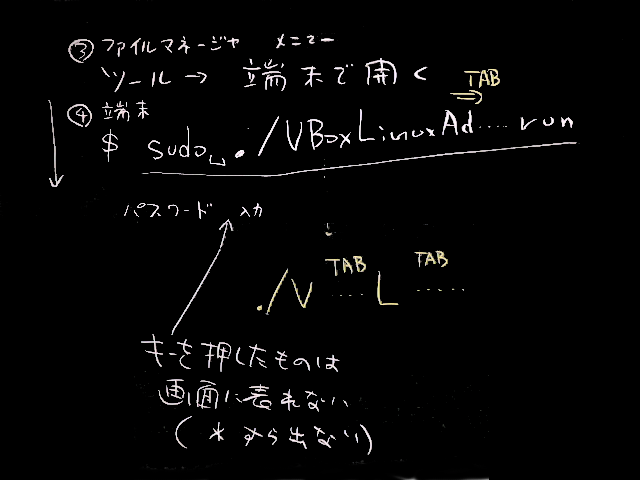 ③ ファイルマネージャ メニュー
ツール → 端末で開く TAB
④ 端末
$ sudo␣./VBoxLinuxAd.....run
パスワード 入力
TAB TAB
./V ..... L .....
キーを押したものは
画面に表れない
(* すら出ない)